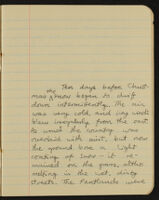 Ten days before Christ-
mas snow began to drift
down intermittently. The air
was very cold and icy winds
blew irregularly from the east
to west the country was
covered with
but now
the ground bore a light
coating of snow - it re-
mained on the grass, altho
melting in the wet, dirty
streets. The
were